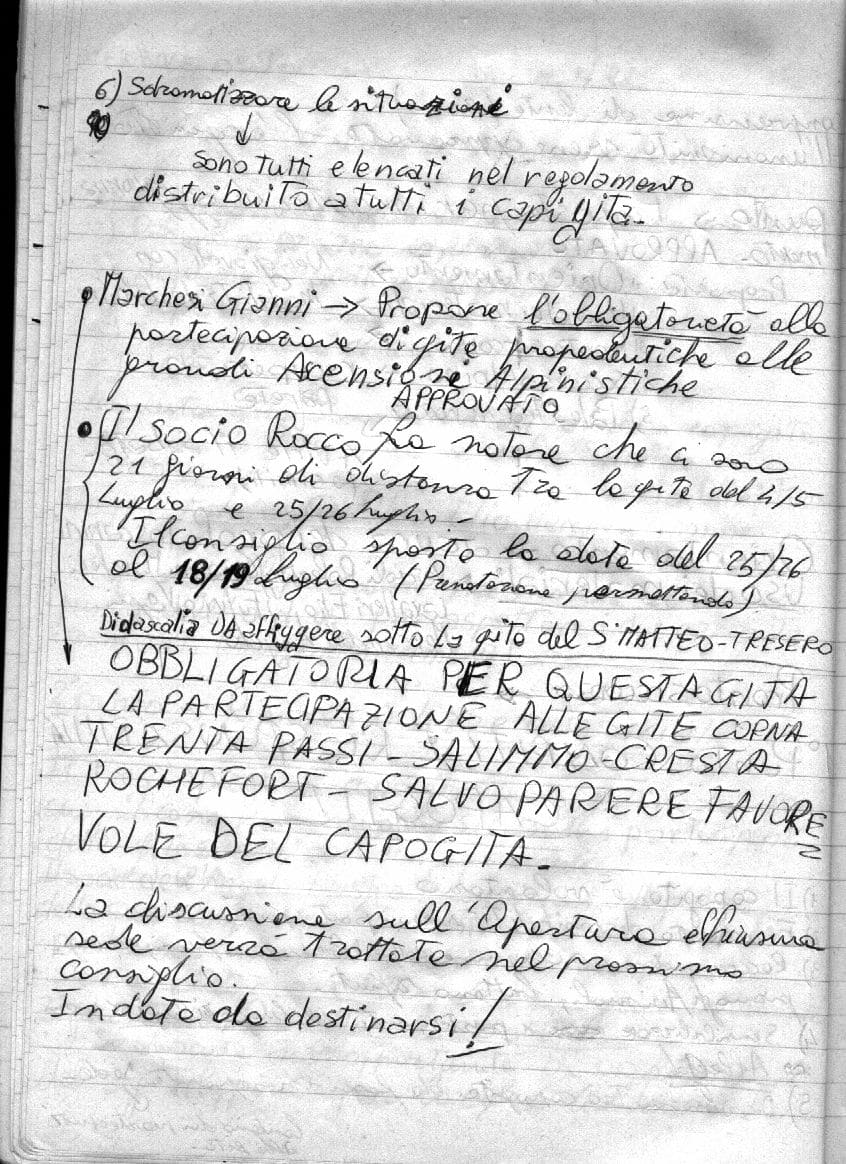 6) Sdramatizzare le situazioni
↓
sono tutti elencati nel regolamento
distribuito a tutti i capigita.
• Marchesi Gianni → Propone l'obbligatorietà alla
partecipazione di gite propedeutiche alle
grandi Acensioni Alpinistiche
APPROVATO
• Il socio Rocco fa notare che ci sono
21 giorni di distanza tra la gita del 4/5
Luglio e 25/26 luglio -
Il consiglio sposta la data del 25/26
al 18/19 Luglio (Prenotazione permettendo)
Didascalia DA affiggere sotto la gita del S. MATTEO - TRESERO
OBBLIGATORIA PER QUESTA GITA
LA PARTECIPAZIONE ALLE GITE CORNA
TRENTA PASSI - SALIMMO - CRESTA
ROCHEFORT - SALVO PARERE FAVORE
VOLE DEL CAPOGITA -
La discussione sull'Apertura e chiusura
sede verrà trattata nel prossimo
consiglio.
In data da destinarsi!